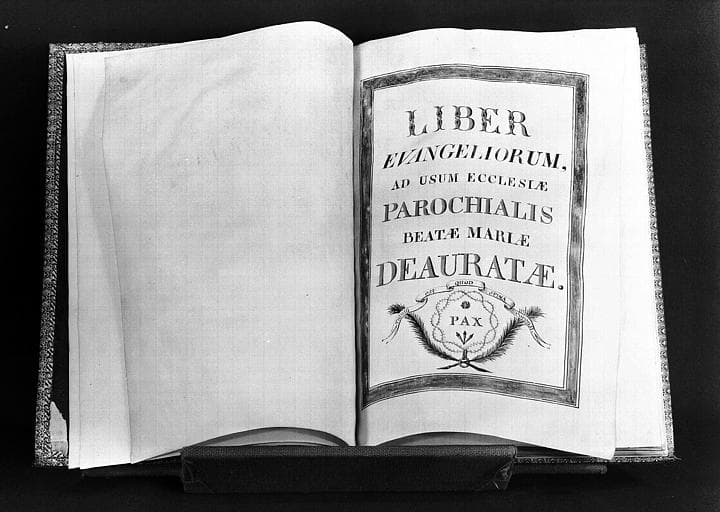 LIBER
EVANGELIORUM,
AD USUM ECCLESIÆ
PAROCHIALIS
BEATÆ MARIÆ
DEAURATÆ.
QUOD
PAX